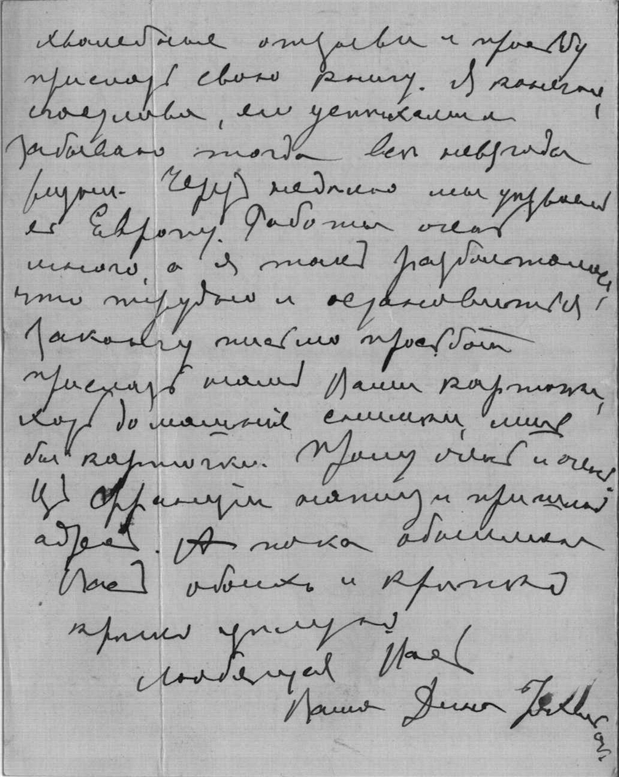 хвалебные отзывы и просьбу
прислать свою книгу. Я конечно,
счастлива, его успехами и
забываю тогда все невзгоды
жизни. Через неделю мы уезжаем
в Европу. Работы очень
много, а я так разболталась,
что трудно и остановиться.
Закончу письмо просьбой
прислать нам Ваши карточки,
хоть домашние снимки, лишь
бы карточки. Прошу очень и очень.
Из Франции напишу и пришлю
адрес. А пока обнимаем
Вас обоих и крепко
крепко целую
Любящая Вас
Ваша Дина